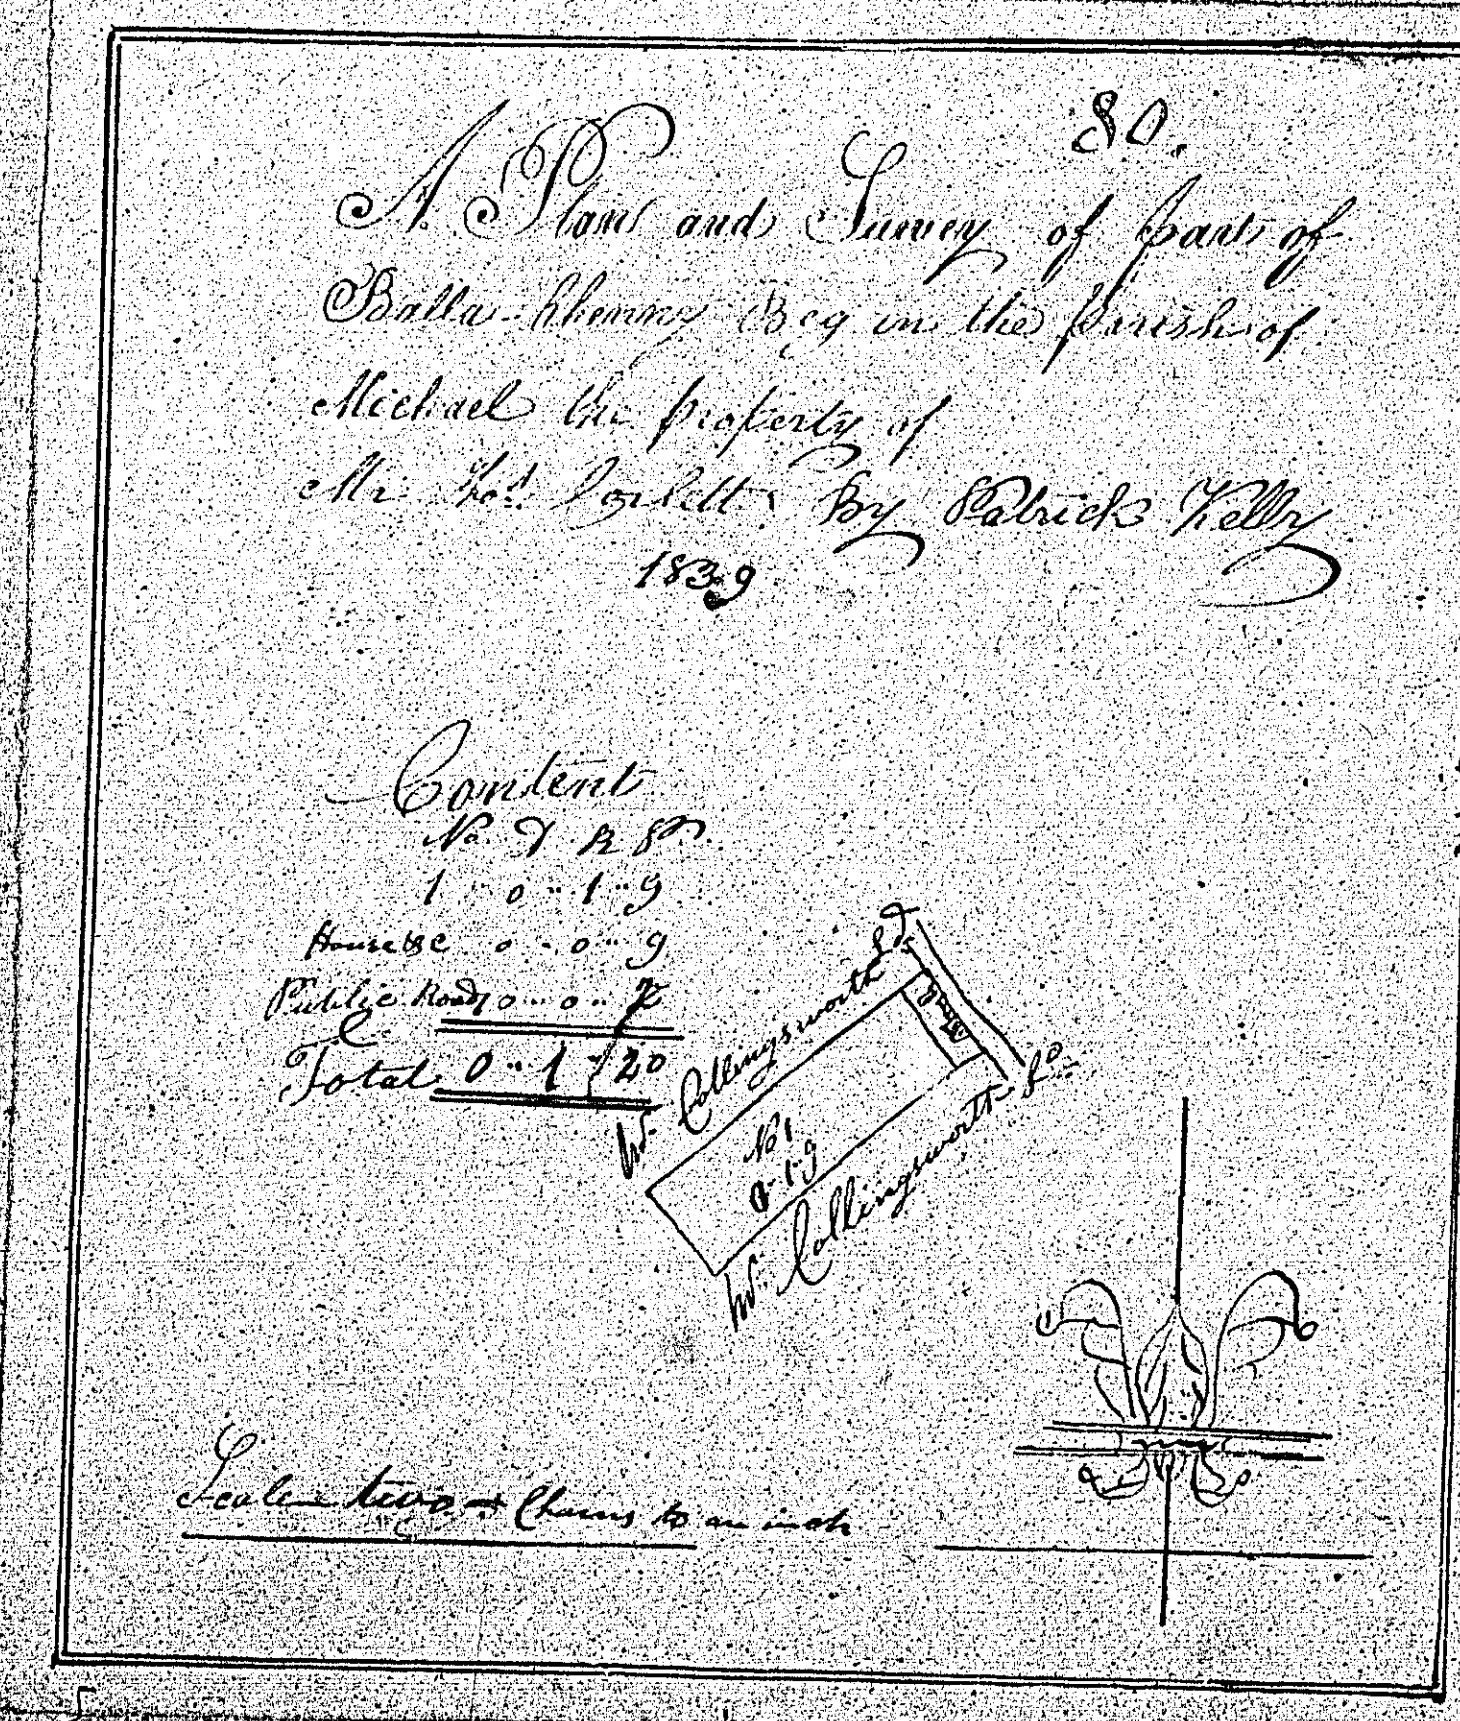 80.
A Plan and Survey of part of
Balla-khenny Beg in the parish of
Michael the property of
Mr. By Patrick Kelly
1839
Content
No. R P
1 0 .. 1 .. 9
House &c 0 .. 0 .. 9
Public Road 0 .. 0 .. 2
Total 0 .. 1 .. 20
W. Collingsworth Ld
No 1
0-1-9
W. Collingsworth Ld
Scale two Chains to an inch